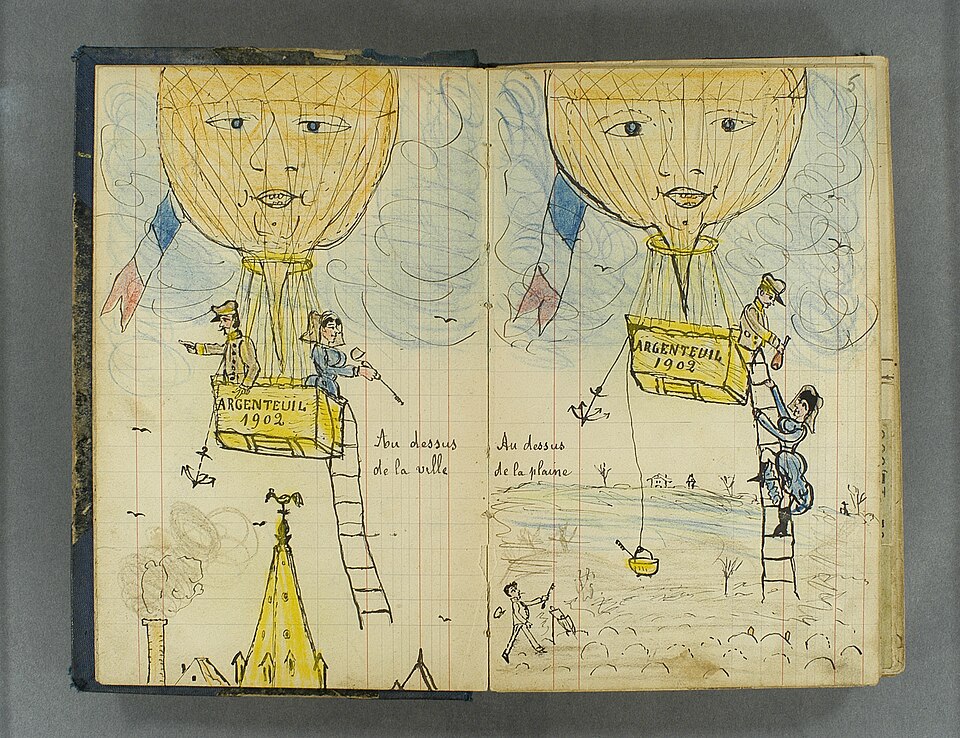 ARGENTEUIL
1902
Au dessus
de la ville
5
ARGENTEUIL
1902
Au dessus
de la plaine